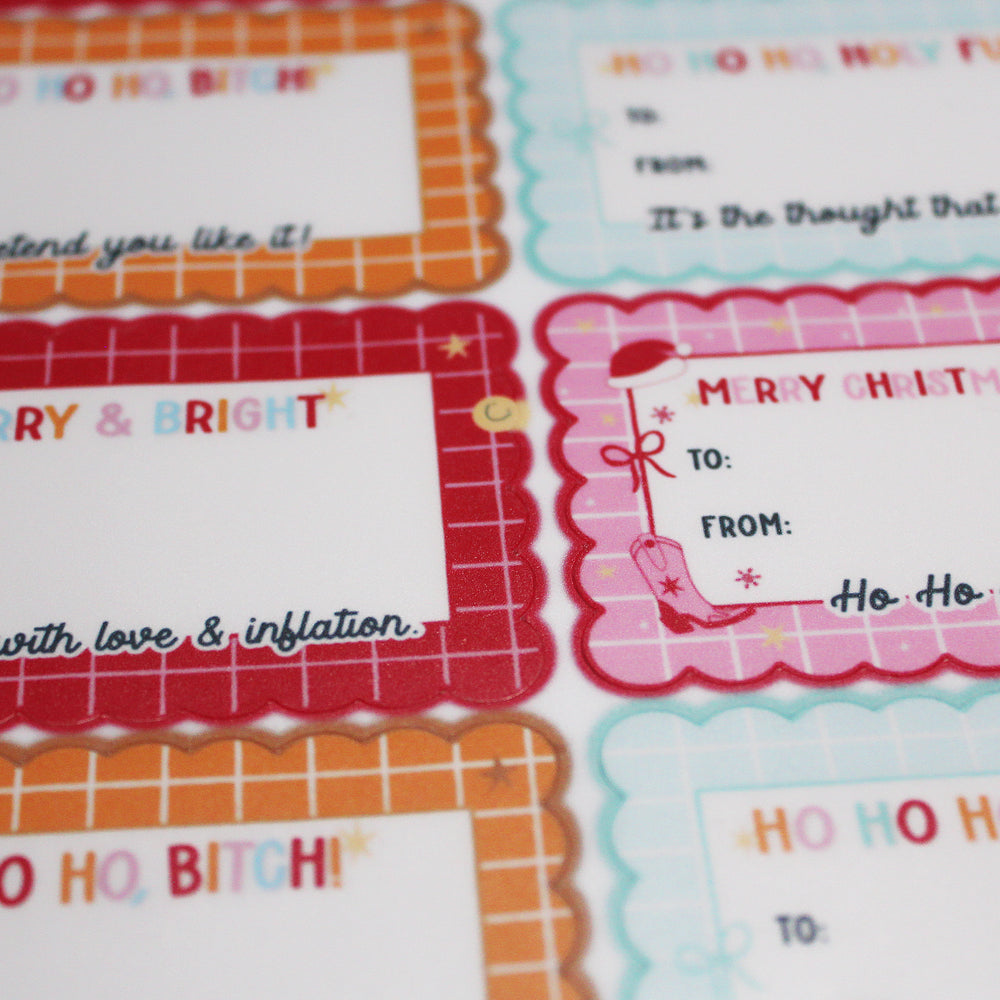 HO HO, BITCH!
etend you like it!
HO HO HO, HOLY FU
TO:
FROM:
It's the thought that
RRY & BRIGHT
with love & inflation.
MERRY CHRISTM
TO:
FROM:
Ho Ho
O HO, BITCH!
HO HO H
TO: